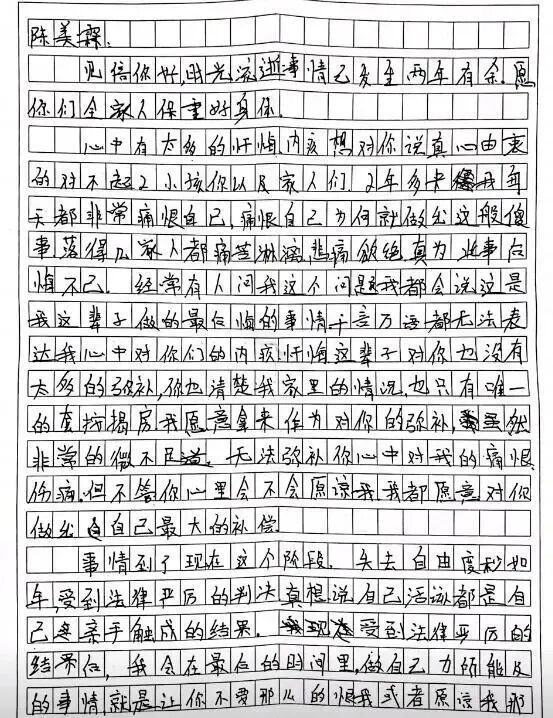 陈美霖.
见信你好,时光流逝事情已发生两年有余.愿
你们全家人保重好身体.
心中有太多的忏悔内疚想对你说真心由衷
的对不起2小孩你以及家人们,2年多来我每
天都非常痛恨自己,痛恨自己为何就做出这般傻
事落得几家人都痛苦淋漓,悲痛欲绝真为此事后
悔不已.经常有人问我这个问题我都会说这是
我这辈子做的最后悔的事情千言万语都无法表
达我心中对你们的内疚忏悔这辈子对你也没有
太多的弥补,你也清楚我家里的情况,也只有唯一
的套按揭房我愿意拿来作为对你的弥补,虽然
非常的微不足道.无法弥补你心中对我的痛恨
伤痛.但不管你心里会不会原谅我我都愿意对你
做出自己最大的补偿
事情到了现在这个阶段.失去自由度秒如
年,受到法律严厉的判决真想说自己活该都是自
己亲手触成的结果.受到法律严厉的
结果后,我会在最后的时间里,做自己力所能及
的事情,就是让你不要那么的恨我或者原谅我那